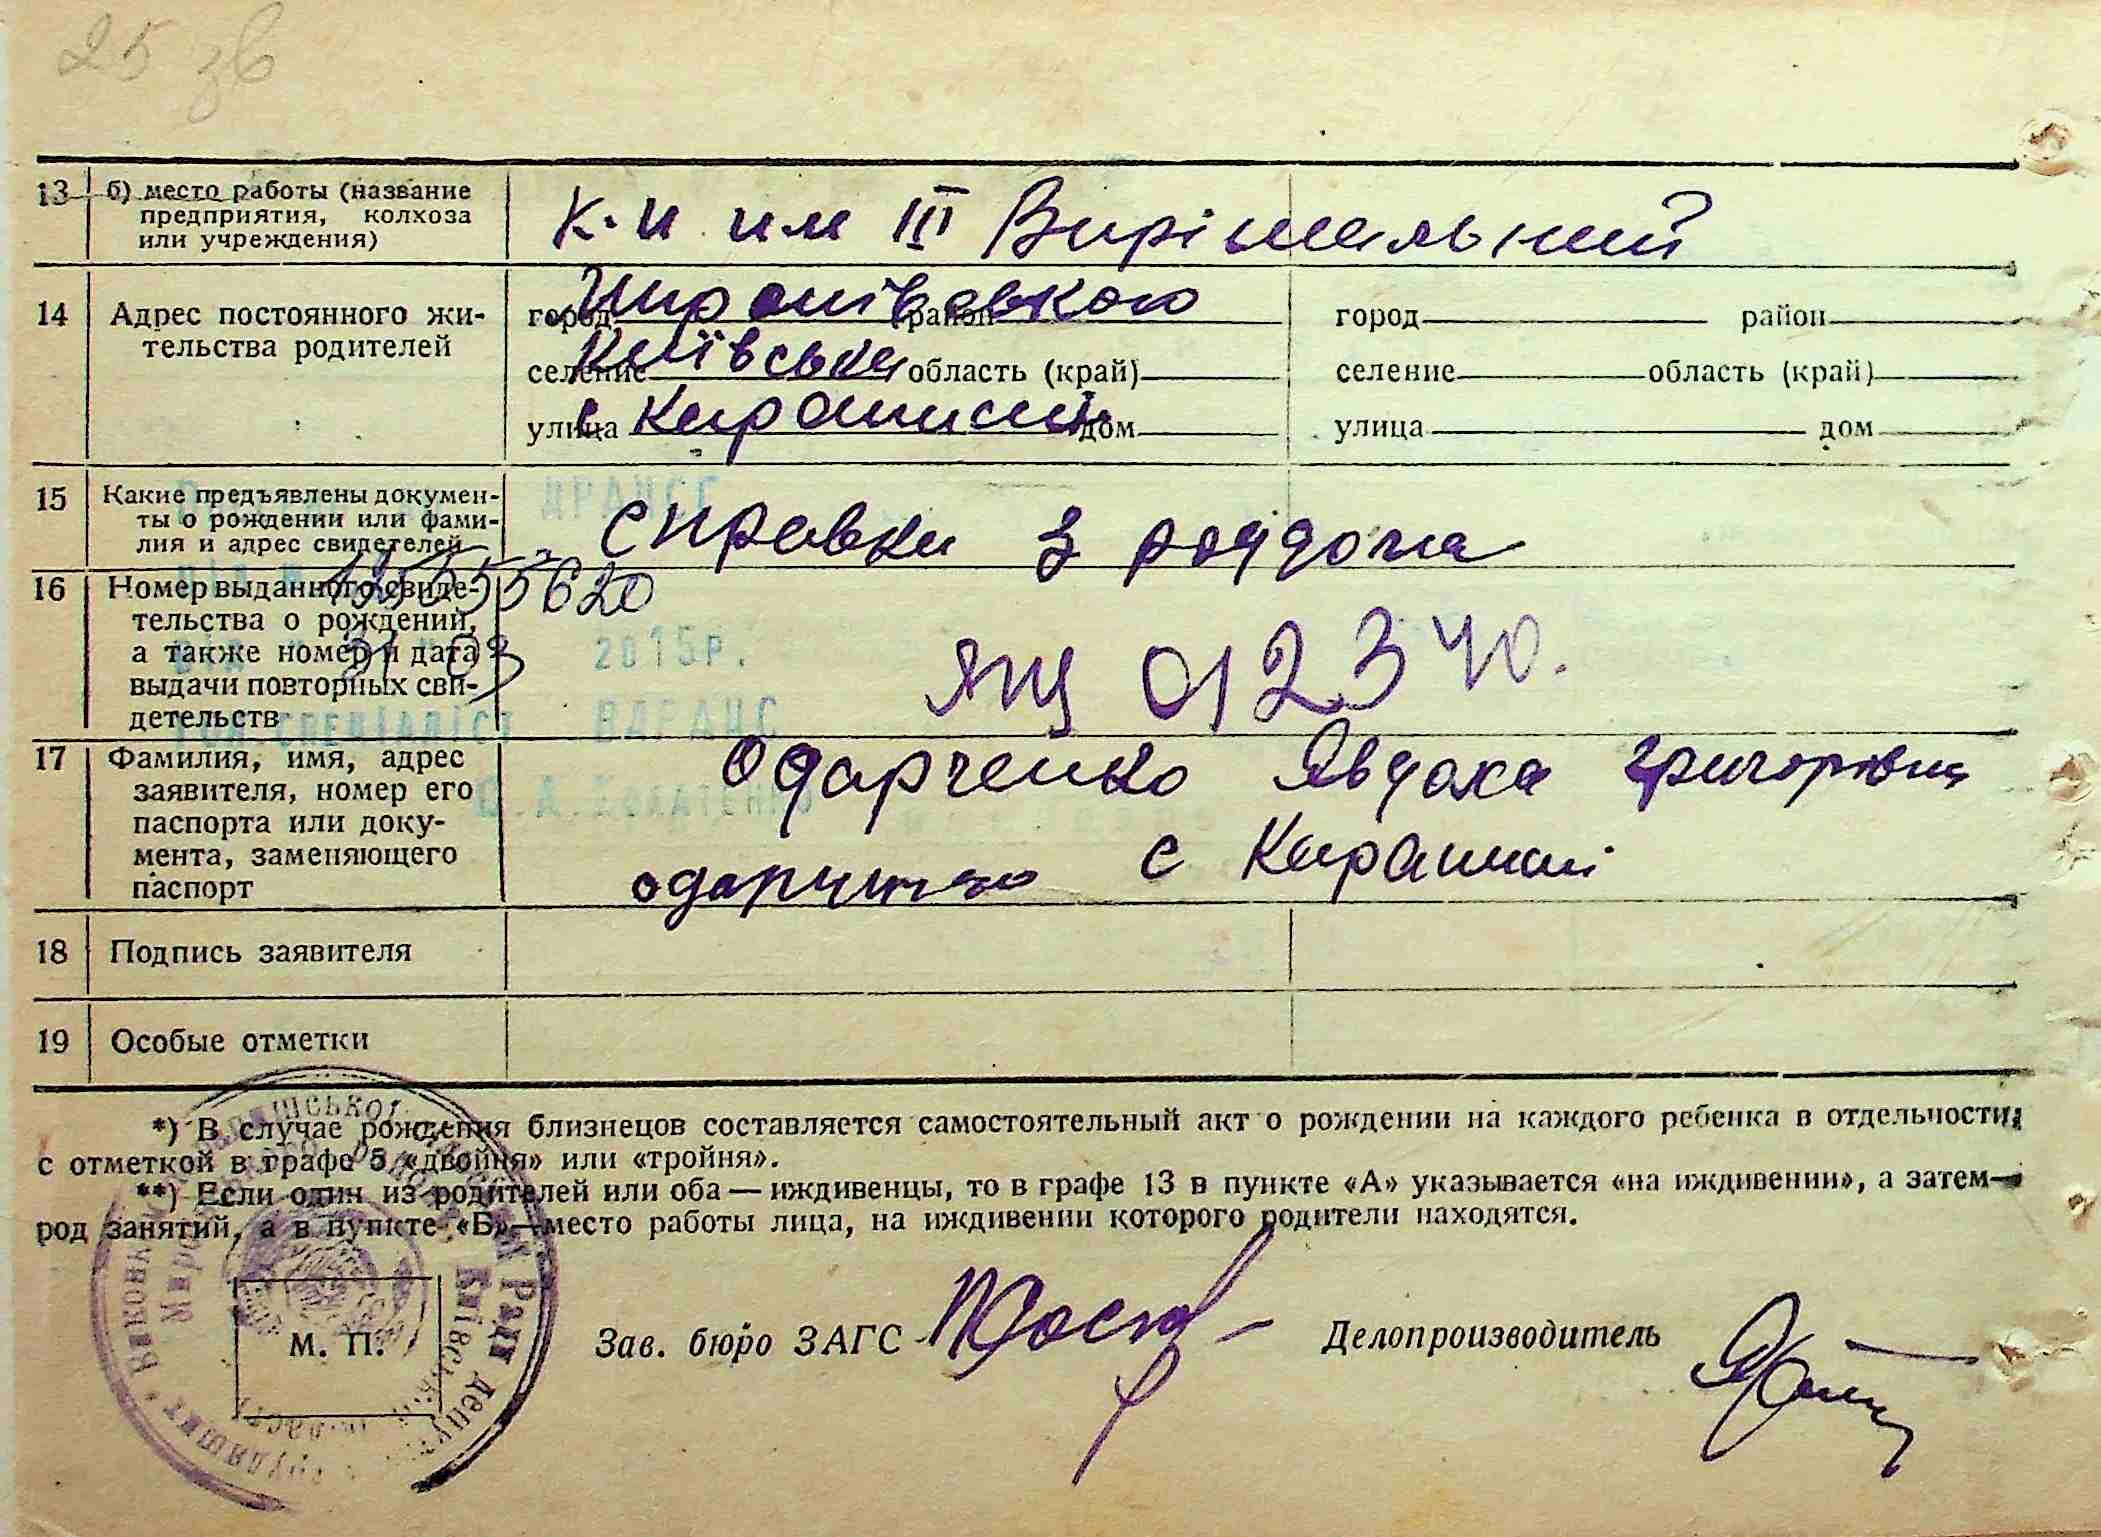 25 зв
13 б) место работы (название
предприятия, колхоза
или учреждения)
к-п им III Вирішальний
14 Адрес постоянного жи-
тельства родителей
город район
Миронівського
селение область (край)
Київська
улица дом
с Карапиші
город район
селение область (край)
улица дом
15 Какие предъявлены докумен-
ты о рождении или фами-
лия и адрес свидетелей
справка з роддома
16 Номер выданного свиде-
тельства о рождений,
а также номер и дата
выдачи повторных сви-
детельств
2015р.
ЯЩ 012340.
17 Фамилия, имя, адрес
заявителя, номер его
паспорта или доку-
мента, заменяющего
паспорт
Одарченко Явдоха Григорівна
с Карапиші
18 Подпись заявителя
19 Особые отметки
*) В случае рождения близнецов составляется самостоятельный акт о рождении на каждого ребенка в отдельности,
с отметкой в графе 5 «двойня» или «тройня».
**) Если один из родителей или оба — иждивенцы, то в графе 13 в пункте «А» указывается «на иждивении», а затем—
род занятий, а в пункте «Б»—место работы лица, на иждивении которого родители находятся.
М. П.
Зав. бюро ЗАГС
Делопроизводитель